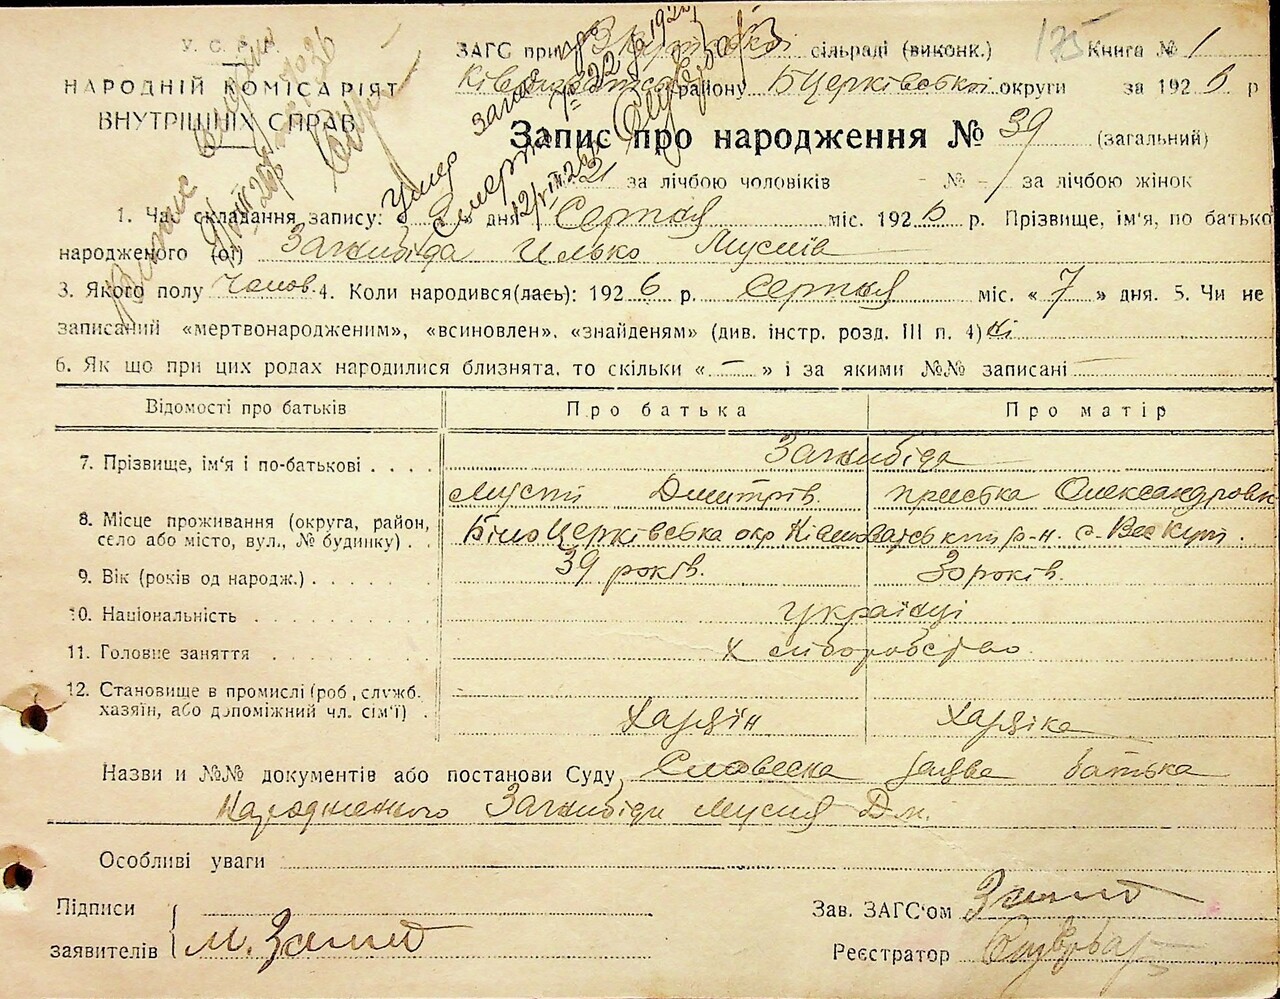 У. С. Р. Р.
НАРОДНІЙ КОМІСАРІЯТ
ВНУТРІШНІХ СПРАВ
ЗАГС при сільраді (виконк.) 175 Книга № 1
району БЦерківської округи за 1926 р
Запис про народження № 39 (загальний)
№ 21 за лічбою чоловіків - № - за лічбою жінок
Умер
1. Час складання запису: « » дня Серпня міс. 1926 р. Прізвище, ім'я, по батькові
народженого (ої) Загнибіда Илько Мусіїв
3. Якого полу Чолов. 4. Коли народився(лась): 1926 р. Серпня міс. « 7 » дня. 5. Чи не
записаний «мертвонародженим», «всиновлен», «знайденям» (див. інстр. розд. III п. 4) Ні
6. Як що при цих родах народилися близнята, то скільки « — » і за якими №№ записані
Відомості про батьків Про батька Про матір
7. Прізвище, ім'я і по-батькові . . . . Загнибіда
Мусій Дмитрів. Олександровн
8. Місце проживання (округа, район,
село або місто, вул., № будинку) . . БілоЦерківська окр р-н. с.
9. Вік (років од народж.) . . . . . 39 років. 30 років.
10. Національність . . . . . . . . українці
11. Головне заняття . . . . . . . Хліборобство
12. Становище в промислі (роб, служб.
хазяїн, або допоміжний чл. сім'ї) . Хазяїн Хазяйка
Назви и №№ документів або постанови Суду Словесна заява батька
Народженого Загнибіди Мусія Дм.
Особливі уваги
Підписи
заявителів М.
Зав. ЗАГС'ом
Реєстратор